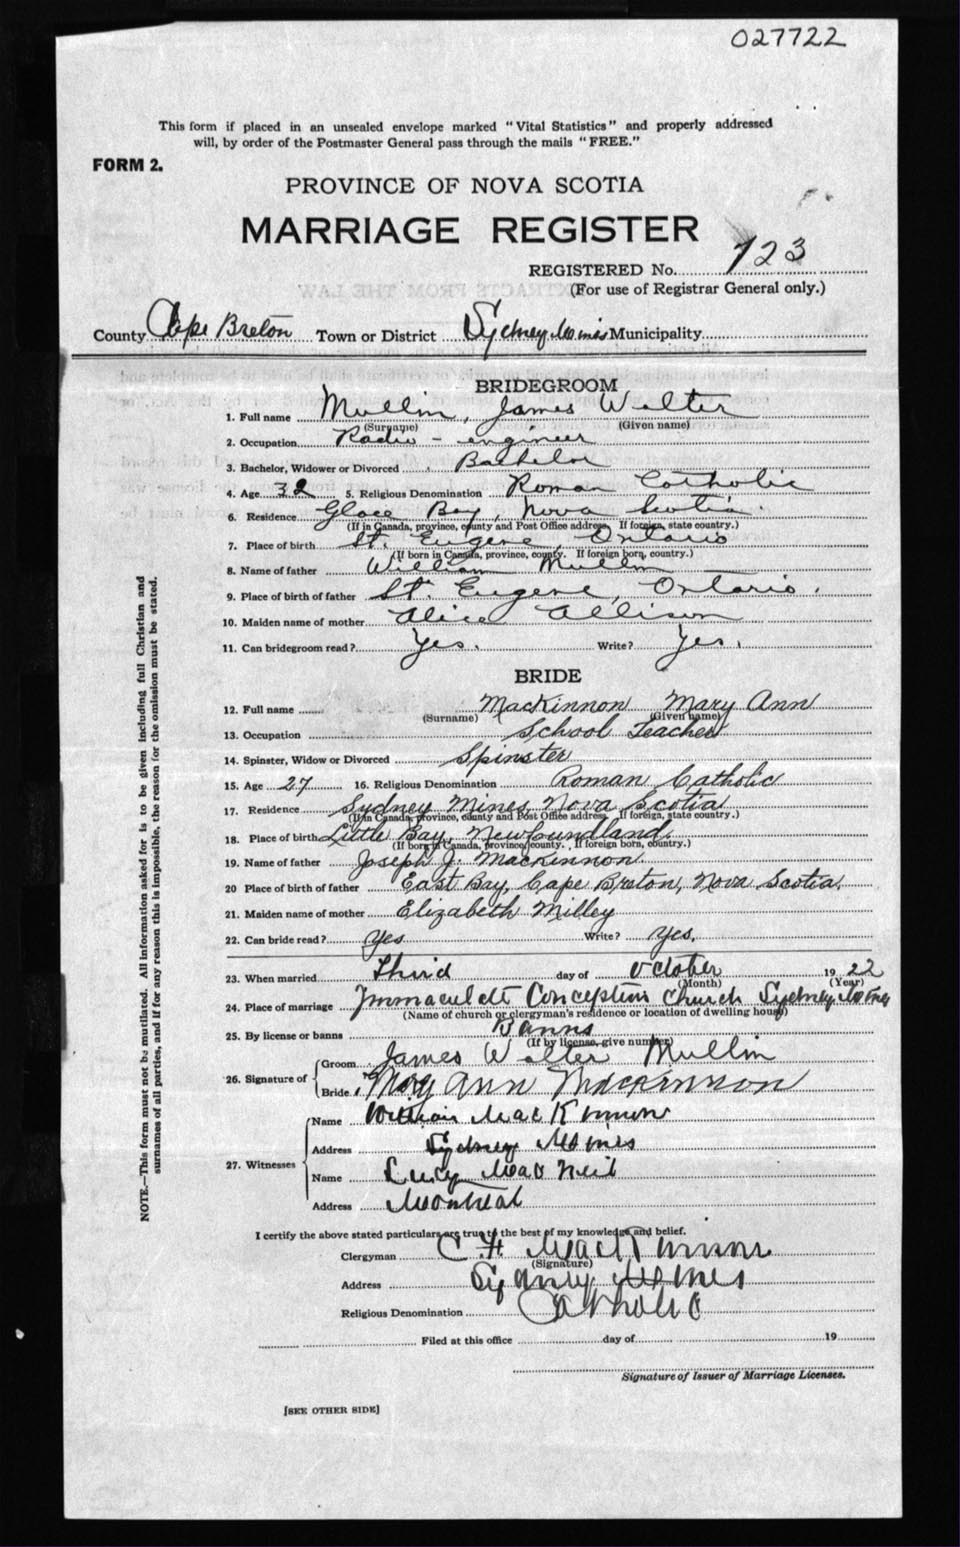 027722
This form if placed in an unsealed envelope marked "Vital Statistics" and properly addressed
will, by order of the Postmaster General pass through the mails "FREE."
FORM 2.
PROVINCE OF NOVA SCOTIA
MARRIAGE REGISTER
REGISTERED No. 723
(For use of Registrar General only.)
County Cape Breton Town or District Sydney Mines Municipality
BRIDEGROOM
1. Full name Mullin, James Walter
(Surname) (Given name)
2. Occupation Radio - engineer
3. Bachelor, Widower or Divorced Bachelor
4. Age 32 5. Religious Denomination Roman Catholic
6. Residence Glace Bay, Nova Scotia.
(If in Canada, province, county and Post Office address. If foreign, state country.)
7. Place of birth St. Eugene, Ontario
(If born in Canada, province, county. If foreign born, country.)
8. Name of father William Mullin
9. Place of birth of father St. Eugene, Ontario.
10. Maiden name of mother Alice Allison
11. Can bridegroom read? Yes. Write? Yes.
BRIDE
12. Full name MacKinnon Mary Ann
(Surname) (Given name)
13. Occupation School Teacher
14. Spinster, Widow or Divorced Spinster
15. Age 27 16. Religious Denomination Roman Catholic
17. Residence Sydney Mines, Nova Scotia
(If in Canada, province, county and Post Office address. If foreign, state country.)
18. Place of birth Little Bay, Newfoundland.
(If born in Canada, province, county. If foreign born, country.)
19. Name of father Joseph J. MacKinnon
20 Place of birth of father East Bay, Cape Breton, Nova Scotia.
21. Maiden name of mother Elizabeth Milley
22. Can bride read? Yes Write? Yes.
23. When married Third day of October 1922
(Month) (Year)
24. Place of marriage Immaculate Conception Church Sydney Mines
(Name of church or clergyman's residence or location of dwelling house)
25. By license or banns Banns
(If by license, give number)
26. Signature of Groom James Walter Mullin
Bride Mary Ann MacKinnon
27. Witnesses Name William MacKinnon
Address Sydney Mines
Name Lucy MacNeil
Address Montreal
I certify the above stated particulars are true to the best of my knowledge and belief.
Clergyman C H MacKinnon
(Signature)
Address Sydney Mines
Religious Denomination Catholic
Filed at this office day of 19
Signature of Issuer of Marriage Licenses.
[SEE OTHER SIDE]
NOTE.—This form must not be mutilated. All information asked for is to be given including full Christian and
surnames of all parties, and if for any reason this is impossible, the reason for the omission must be stated.